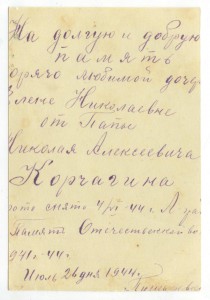 На долгую и добрую
память
горячо любимой доче
Елене Николаевне
от Папы
Николая Алексеевича
Корчагина
фото снято 4/VI-44.
Память Отечественной во
1941-44.
Июль 26 дня 1944г.